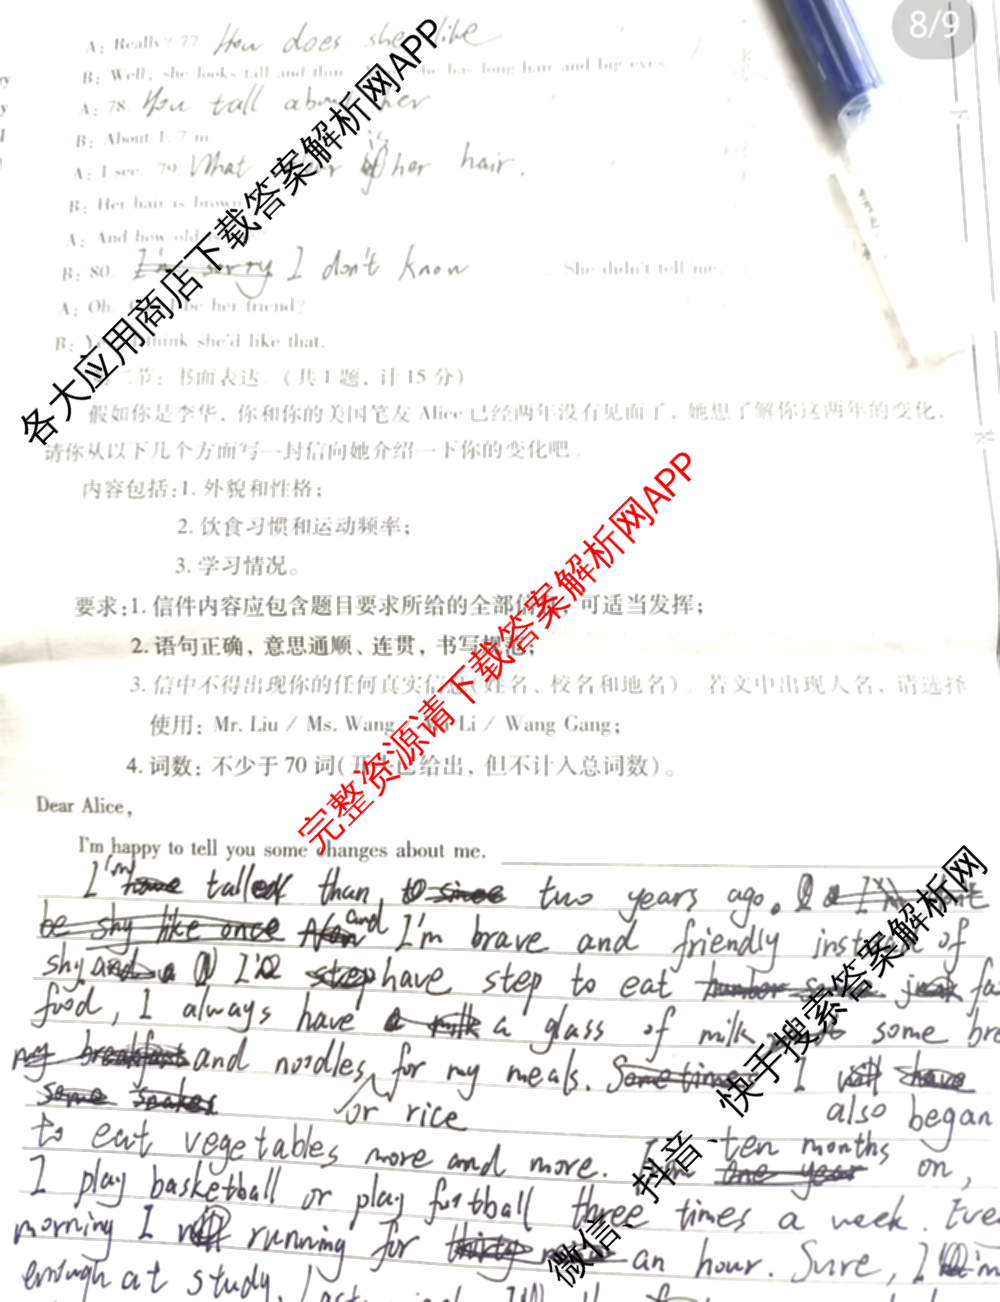 8/9
A: Really? 77. How does she like
B: Well, she looks tall and thin. she has long hair and big eyes.
A: 78. You tall about her
B: About 1.7 m
A: I see. 79. What is her hair.
B: Her hair is brown
A: And how old
B: 80. I don't know She didn't tell me.
A: Oh, be her friend?
B: Yes, I think she'd like that.
二节: 书面表达 (共1题, 计15分)
假如你是李华, 你和你的美国笔友 Alice 已经两年没有见面了, 她想了解你这两年的变化,
请你从以下几个方面写一封信向她介绍一下你的变化吧。
内容包括:1. 外貌和性格;
2. 饮食习惯和运动频率;
3. 学习情况。
要求:1. 信件内容应包含题目要求所给的全部信息, 可适当发挥;
2. 语句正确, 意思通顺、连贯, 书写规范;
3. 信中不得出现你的任何真实信息(姓名、校名和地名)。若文中出现人名, 请选择
使用: Mr. Liu / Ms. Wang / Li / Wang Gang;
4. 词数: 不少于 70 词(开头已给出, 但不计入总词数)。
Dear Alice,
I'm happy to tell you some changes about me.
I'm tall than two years ago.
and I'm brave and friendly instead of
shy. have step to eat
food, I always have a glass of milk some
and noodles for my meals. I
or rice also began
to eat vegetables more and more. ten months on,
I play basketball or play football three times a week.
morning I running for an hour. Sure, I
enough at study.
各大应用商店下载答案解析网APP
完整资源请下载答案解析网APP
微信、抖音、快手搜索答案解析网